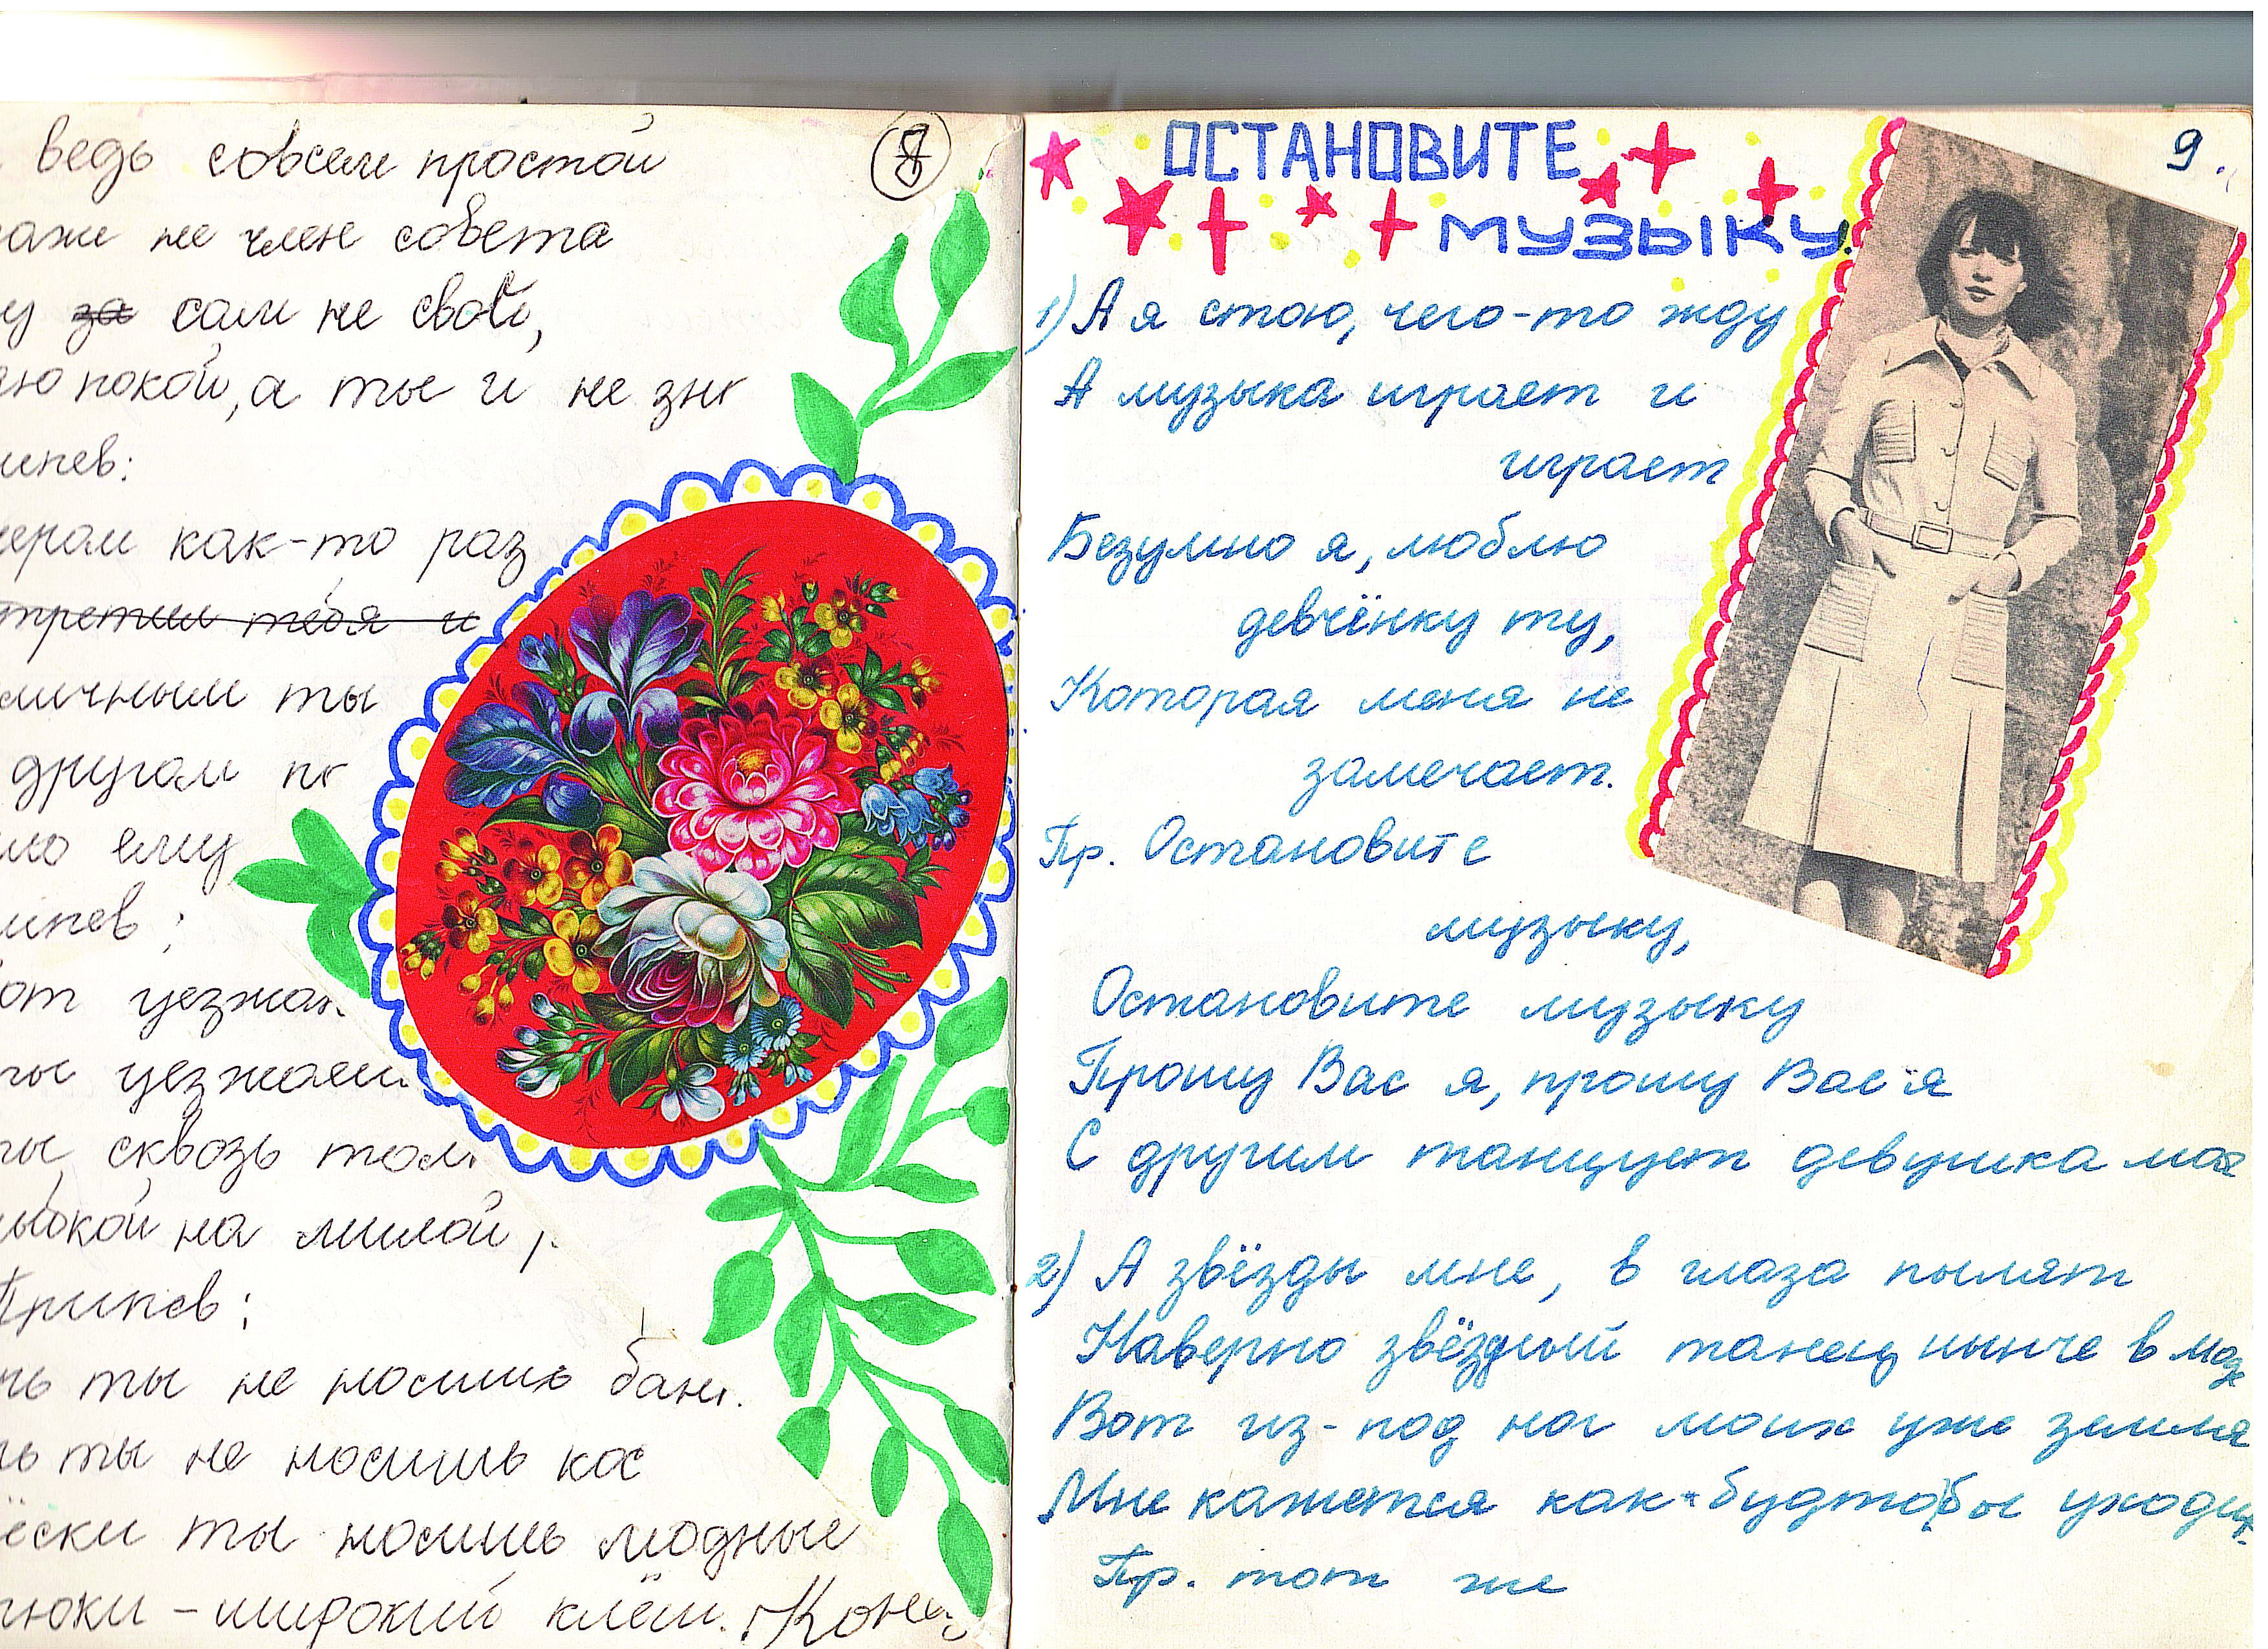 ведь совсем простой
8
не член совета
сам не свой,
покой, а ты и не
как-то раз
ты
другом
ему
сквозь
на милой,
Припев:
ты не носишь
ты не носишь кос
ты носишь модные
- широкий клёш.
ОСТАНОВИТЕ
МУЗЫКУ.
9.
1) А я стою, чего-то жду
А музыка играет и
играет
Безумно я, люблю
девчёнку ту,
Которая меня не
замечает.
Пр. Остановите
музыку,
Остановите музыку
Прошу Вас я, прошу Вас я
С другим танцует девушка моя
2) А звёзды мне, в глаза пылят
Наверно звёздный танец нынче в моде
Вот из-под ног моих уже земля
Мне кажется как-будто бы уходит
Пр. тот же